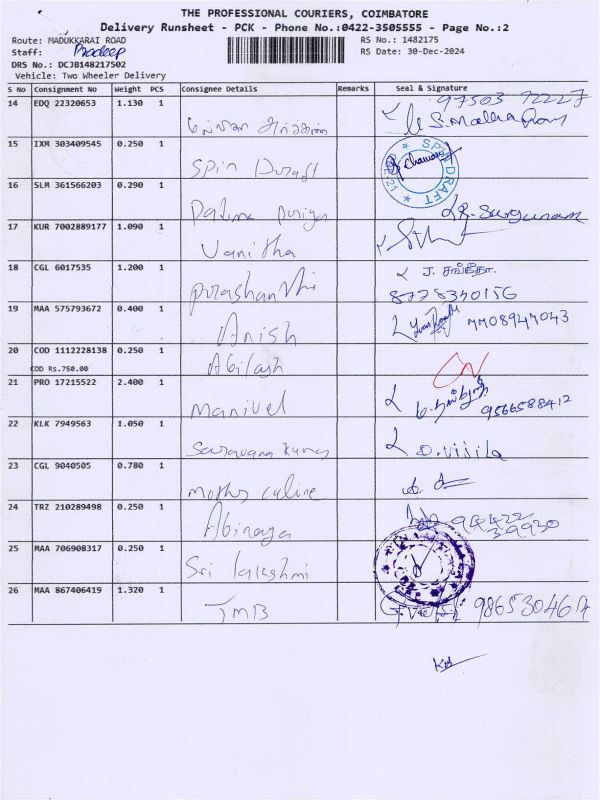 THE PROFESSIONAL COURIERS, COIMBATORE
Delivery Runsheet - PCK - Phone No.:0422-3505555 - Page No.:2
Route: MADUKKARAI ROAD
RS No.: 1482175
Staff: Pradeep
RS Date: 30-Dec-2024
DRS No.: DCJB148217502
Vehicle: Two Wheeler Delivery
S No Consignment No Weight PCS Consignee Details Remarks Seal & Signature
14 EDQ 22320653 1.130 1 97503 72227
15 IXM 303409545 0.250 1 Spin Draft SPIN DRAFT
16 SLM 361566203 0.290 1
17 KUR 7002889177 1.090 1 Vanitha
18 CGL 6017535 1.200 1 Prashanthi ஜ. சங்கீதா.
8778340156
19 MAA 575793672 0.400 1 Anish 7708947043
20 COD 1112228138 0.250 1 Abilash
COD Rs.750.00
21 PRO 17215522 2.400 1 Manivel 9566588412
22 KLK 7949563 1.050 1 D. Visila
23 CGL 9040505 0.780 1
24 TRZ 210289498 0.250 1 Abinaya 94422
39930
25 MAA 706908317 0.250 1 Sri lakshmi
26 MAA 867406419 1.320 1 TMB